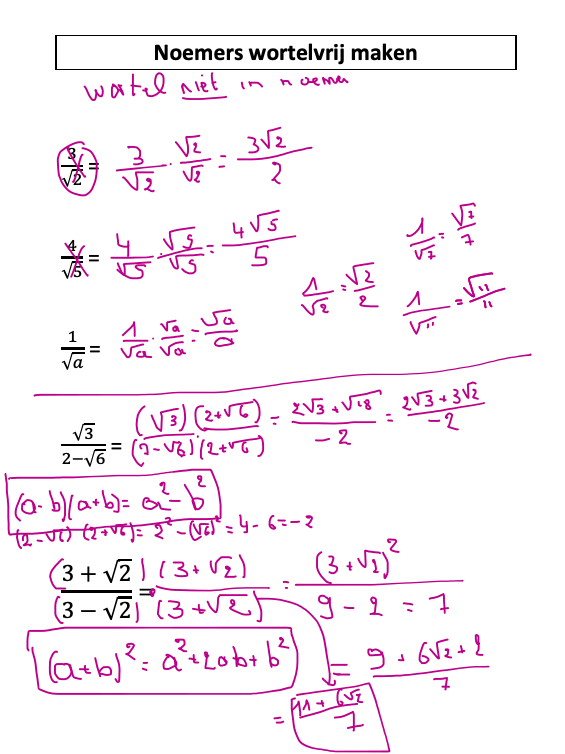 Noemers wortelvrij maken
wortel niet in noemer
3/√2 = 3/√2 · √2/√2 = 3√2/2
4/√5 = 4/√5 · √5/√5 = 4√5/5
1/√7 = √7/7
1/√2 = √2/2
1/√11 = √11/11
1/√a = 1/√a · √a/√a = √a/a
√3/(2−√6) = (√3)(2+√6)/(2-√6)(2+√6) = (2√3+√18)/-2 = (2√3+3√2)/-2
(a-b)(a+b) = a²-b²
(2-√6)(2+√6) = 2²-(√6)² = 4-6=-2
(3+√2)/(3−√2) = (3+√2)/(3+√2) = (3+√2)²/9-2 = 7
(a+b)² = a²+2ab+b²
= (9+6√2+2)/7
= (11+6√2)/7